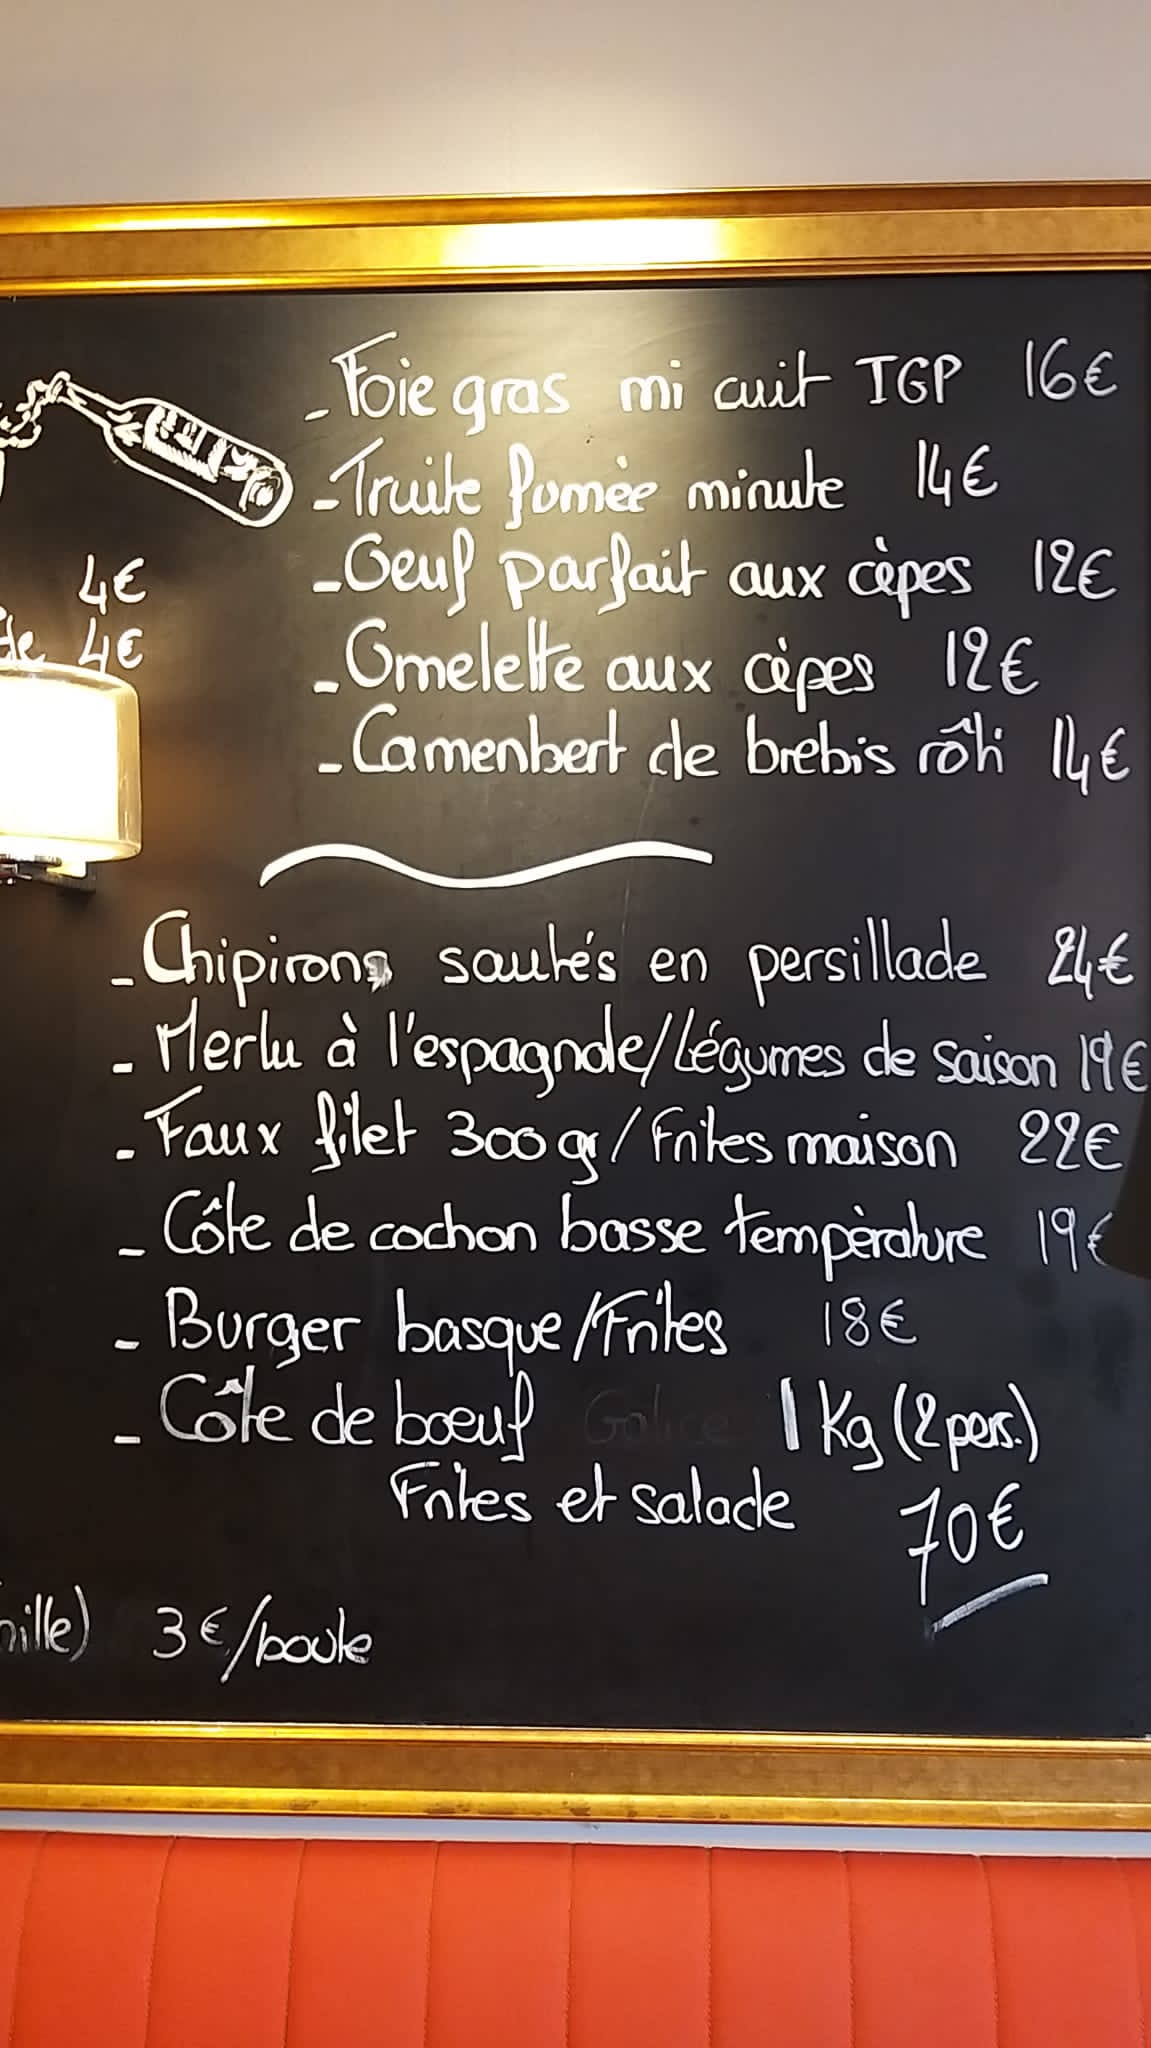 - Foie gras mi cuit IGP 16€
- Truite fumèe minute 14€
- Oeuf parfait aux cèpes 12€
- Omelette aux cèpes 12€
- Camenbert de brebis rôti 14€
4€
de 4€
- Chipirons sautés en persillade 24€
- Merlu à l'espagnole/Légumes de saison 19€
- Faux filet 300gr/Frites maison 22€
- Côte de cochon basse tempèrature 19€
- Burger basque/Frites 18€
- Côte de bœuf Galice 1 Kg (2 pers.)
Frites et salade
70€
nille) 3€/boule